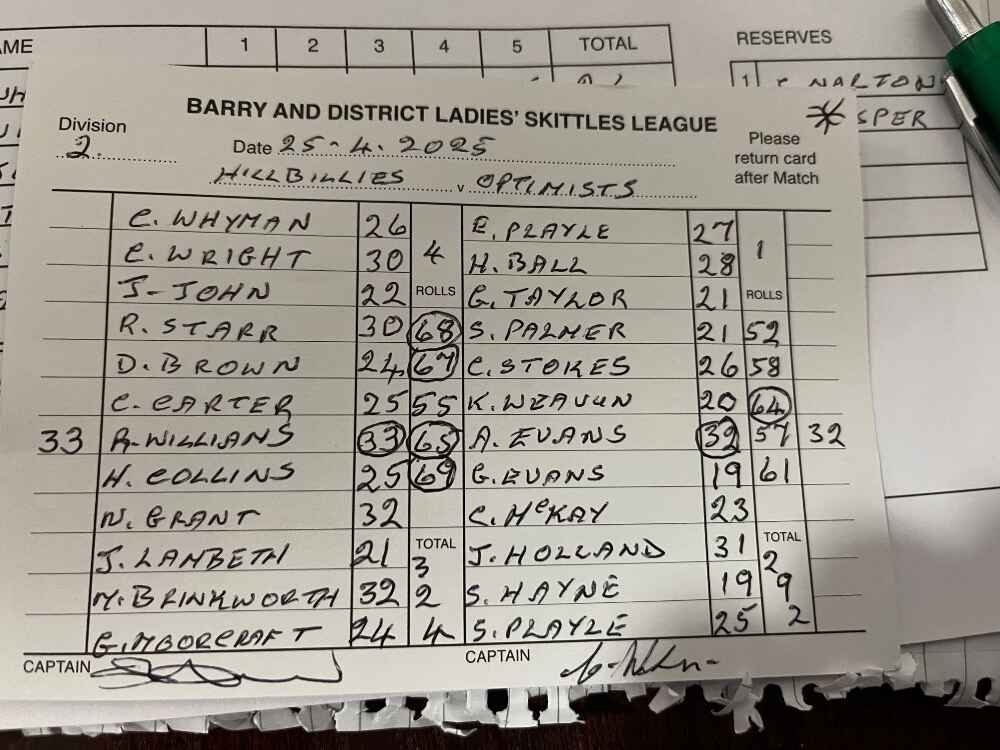 AME 1 2 3 4 5 TOTAL RESERVES
1 C. NARTON
SPER
BARRY AND DISTRICT LADIES' SKITTLES LEAGUE
Division 2. Date 25-4.2025 Please return card after Match
HILLBILLIES v OPTIMISTS
C. WHYMAN 26 4 E. PLAYLE 27 1
C. WRIGHT 30 H. BALL 28
J-JOHN 22 ROLLS G. TAYLOR 21 ROLLS
R. STARR 30 68 S. PALMER 21 52
D. BROWN 24 67 C. STOKES 26 58
C. CARTER 25 55 K. 20 64
33 R. WILLIANS 33 65 A. EVANS 32 57 32
H. COLLINS 25 69 G. EVANS 19 61
N. GRANT 32 C. McKAY 23
J. LAMBETH 21 TOTAL 3 J. HOLLAND 31 TOTAL 2
M. BRINKWORTH 32 2 S. HAYNE 19 9
G. 24 4 S. PLAYLE 25 2
CAPTAIN CAPTAIN